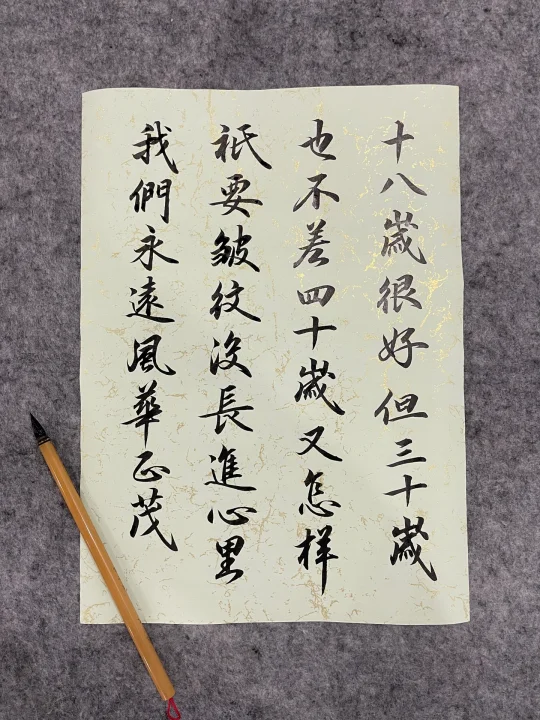 十八歲很好但三十歲
也不差四十歲又怎样
祇要皱纹沒長進心里
我們永遠風華正茂